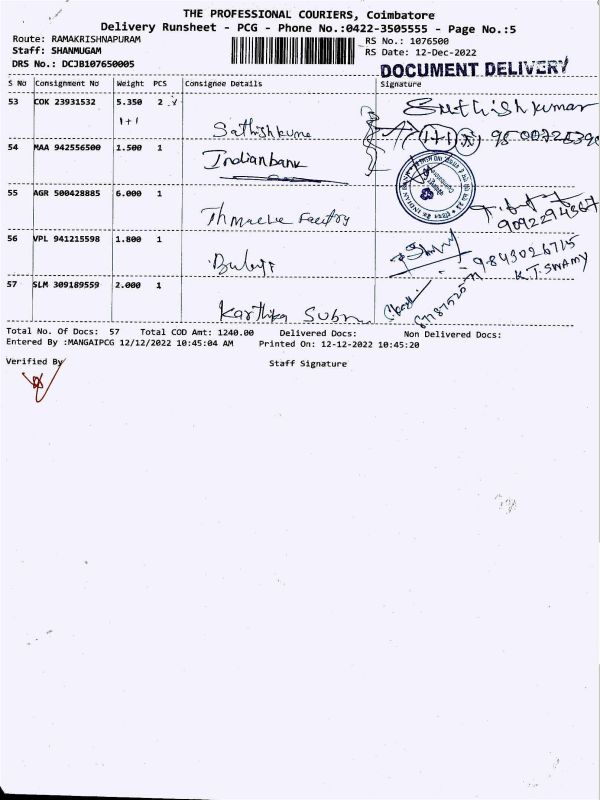 THE PROFESSIONAL COURIERS, Coimbatore
Delivery Runsheet - PCG - Phone No.:0422-3505555 - Page No.:5
Route: RAMAKRISHNAPURAM RS No.: 1076500
Staff: SHANMUGAM RS Date: 12-Dec-2022
DRS No.: DCJB107650005 DOCUMENT DELIVERY
S No Consignment No Weight PCS Consignee Details Signature
53 COK 23931532 5.350 2
1+1 Sathishkumar
54 MAA 942556500 1.500 1 Indianbank 1+1
55 AGR 500428885 6.000 1 9092294367
56 VPL 941215598 1.800 1 Balaji 9843026715
K.T. SWAMY
57 SLM 309189559 2.000 1 Karthika
Total No. Of Docs: 57 Total COD Amt: 1240.00 Delivered Docs: Non Delivered Docs:
Entered By :MANGAIPCG 12/12/2022 10:45:04 AM Printed On: 12-12-2022 10:45:20
Verified By Staff Signature